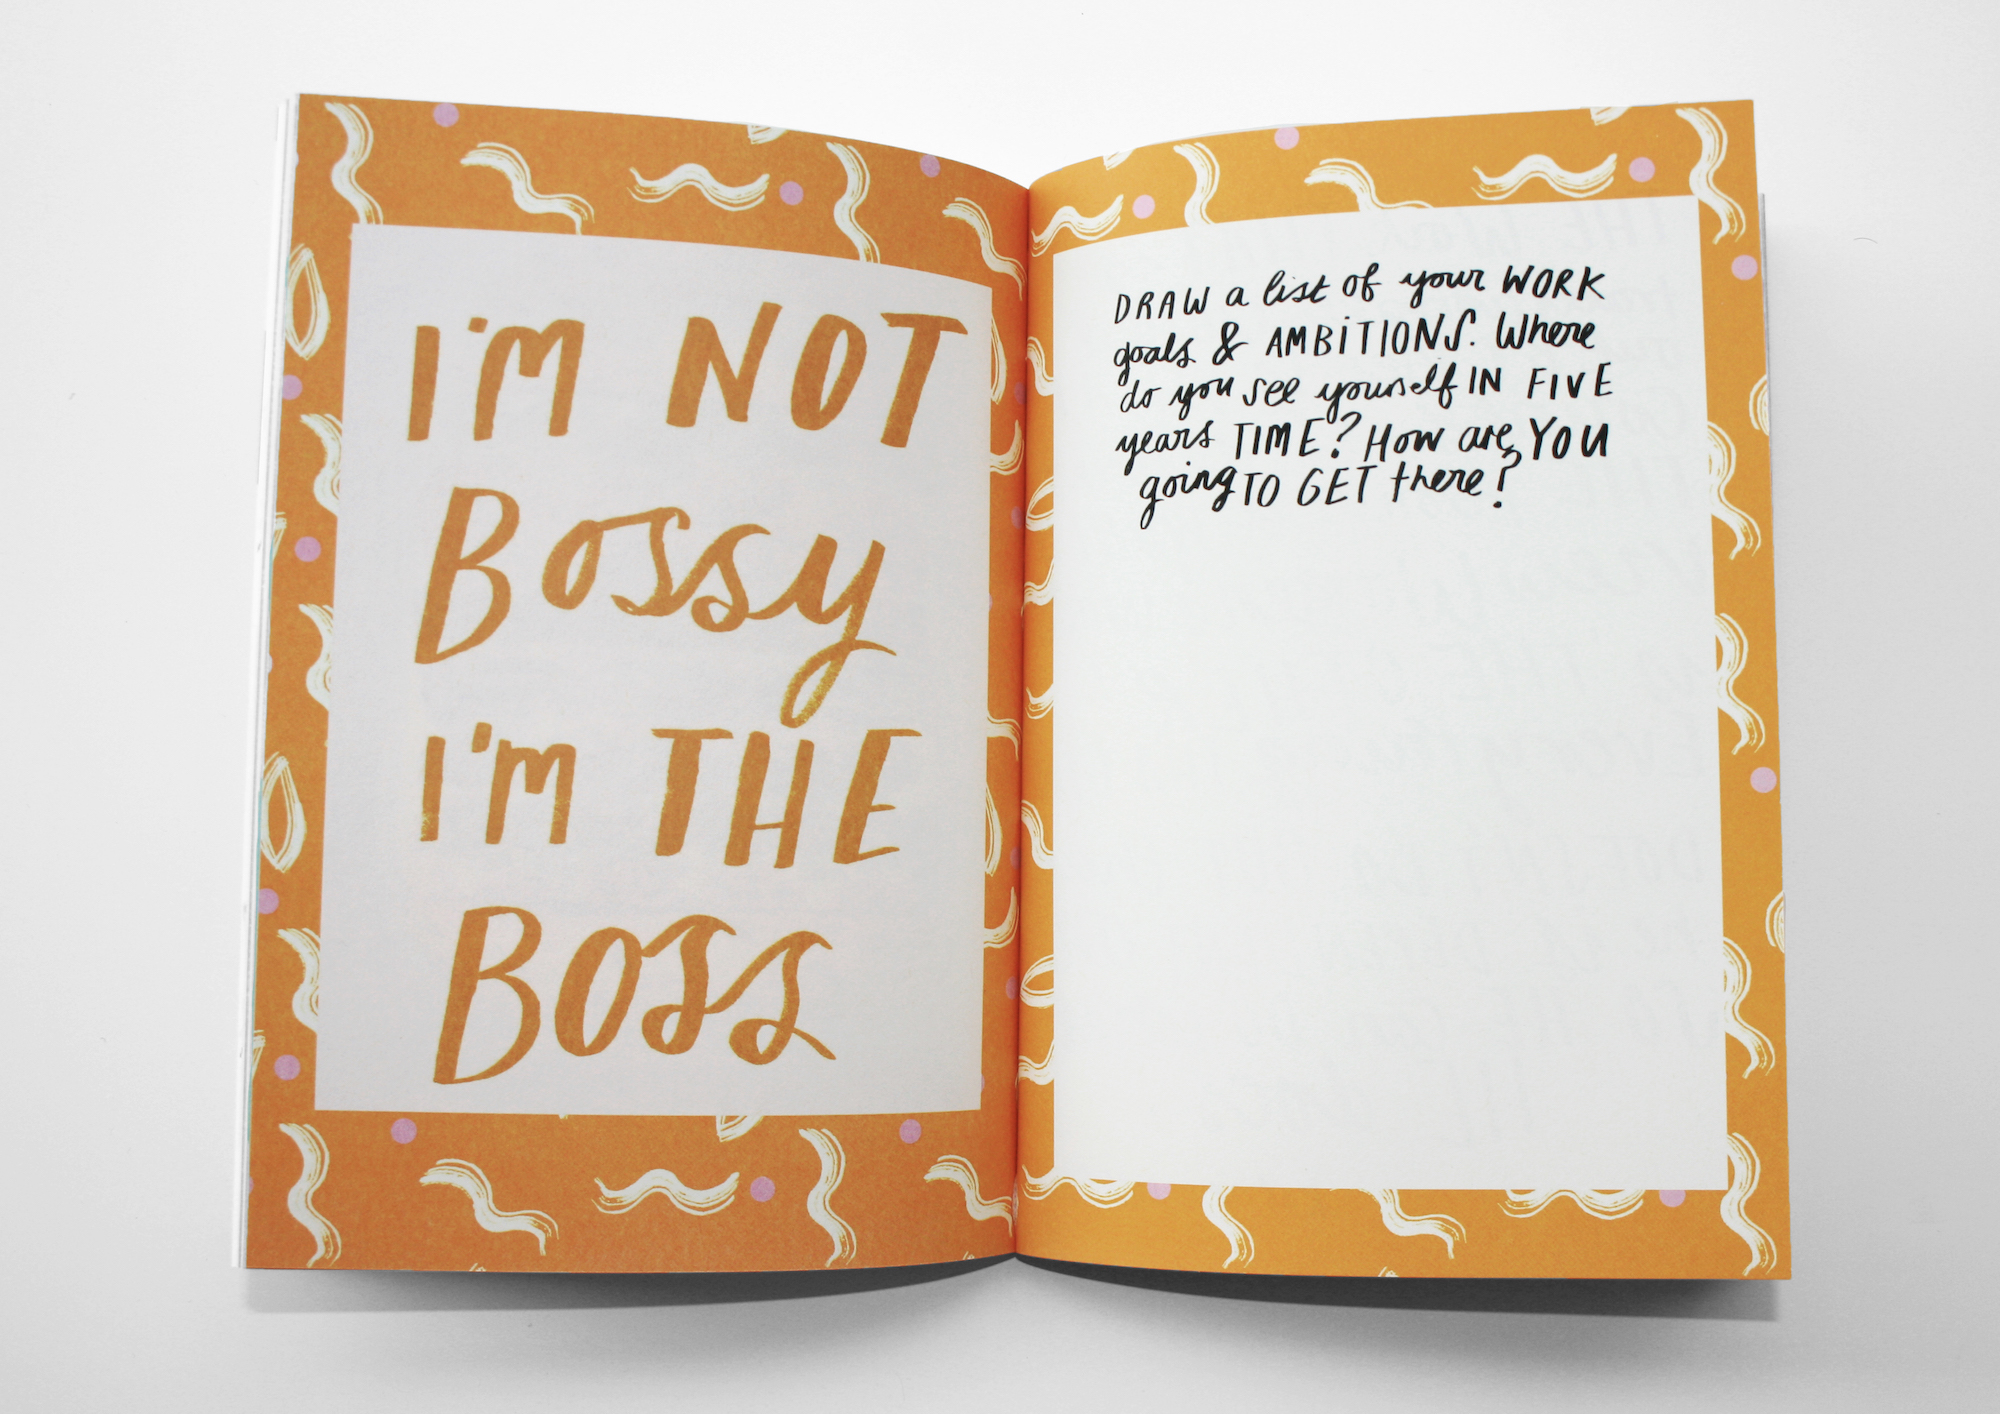 I'M NOT
BOSSY
I'M THE
BOSS
DRAW a list of your WORK
goals & AMBiTIONS. Where
do you see yourself IN FIVE
years TIME? How are YOU
going TO GET there?